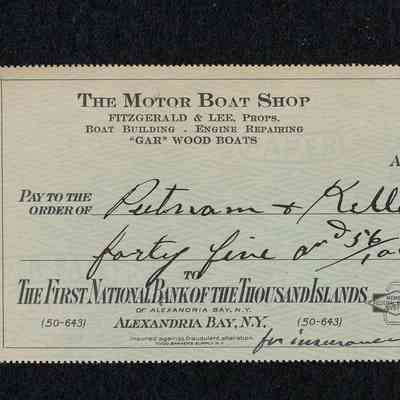 THE MOTOR BOAT SHOP
FITZGERALD & LEE, PROPS.
BOAT BUILDING - ENGINE REPAIRING
"GAR" WOOD BOATS
A
PAY TO THE
ORDER OF Putnam + Kell
forty five and 56/100
TO
THE FIRST NATIONAL BANK OF THE THOUSAND ISLANDS
OF ALEXANDRIA BAY, N.Y.
(50-643) ALEXANDRIA BAY, N.Y. (50-643)
Insured against fraudulent alteration
for insurance